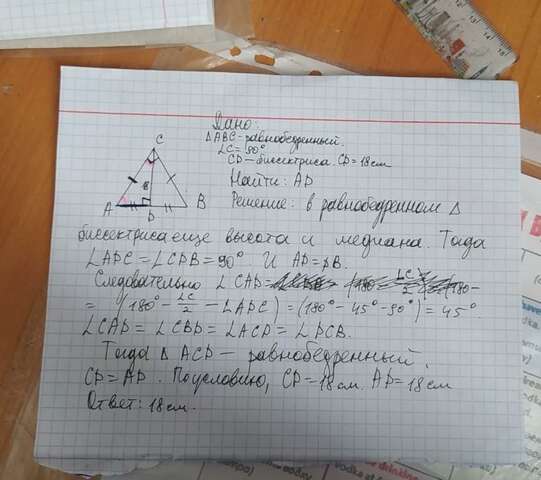 Дано:
ΔABC - равнобедренный.
∠C = 90°
CD - биссектриса. CD = 18 см
Найти: AD
Решение: в равнобедренном Δ
биссектриса еще высота и медиана. Тогда
∠ADC = ∠CDB = 90° и AD = DB.
Следовательно ∠CAD =
= (180° - ∠C/2 - ∠ADC) = (180° - 45° - 90°) = 45°.
∠CAD = ∠CBD = ∠ACD = ∠DCB.
Тогда Δ ACD - равнобедренный.
CD = AD. По условию, CD = 18 см. AD = 18 см
Ответ: 18 см.
C
A
D
B